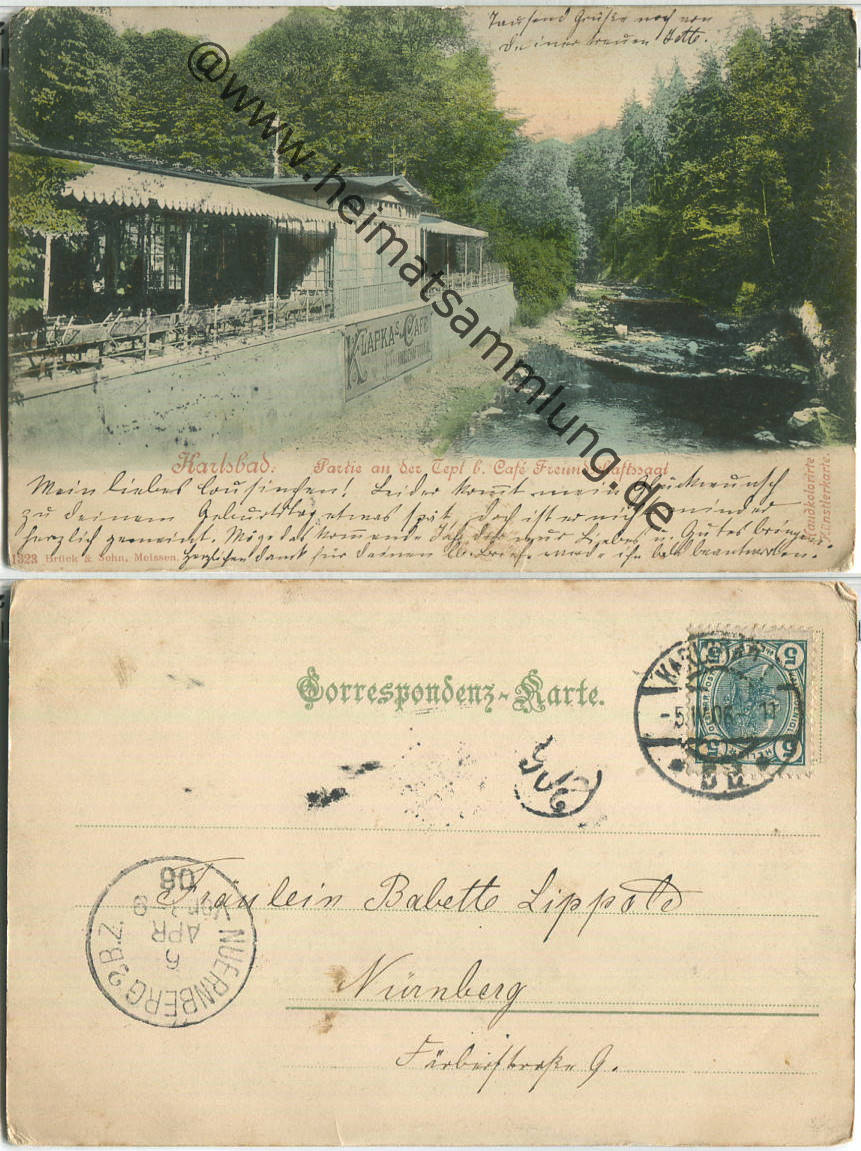 Tausend Grüße noch von
deiner treuen Bette.
@www.heimatsammlung.de
KLAPKA'S CAFÉ
Karlsbad. Partie an der Tepl b. Café Freundschaftssaal
Handkolorirte
Künstlerkarte.
Mein liebes Cousinchen! Leider kommt mein Glückwunsch
zu deinem Geburtstag etwas spät, doch ist er nicht minder
herzlich gemeint. Möge das kommende Jahr dir nur Liebes u. Gutes bringen.
1323 Brück & Sohn, Meissen. Herzlichen Dank für deinen lb. Brief, werde ihn bald beantworten.
Correspondenz-Karte.
5 5
KARLSBAD
-5 IV 06 11
5 5
NUERNBERG 2 B.Z.
5
APR
06
Fräulein Babette Lippold
Nürnberg
Färberstraße 9.